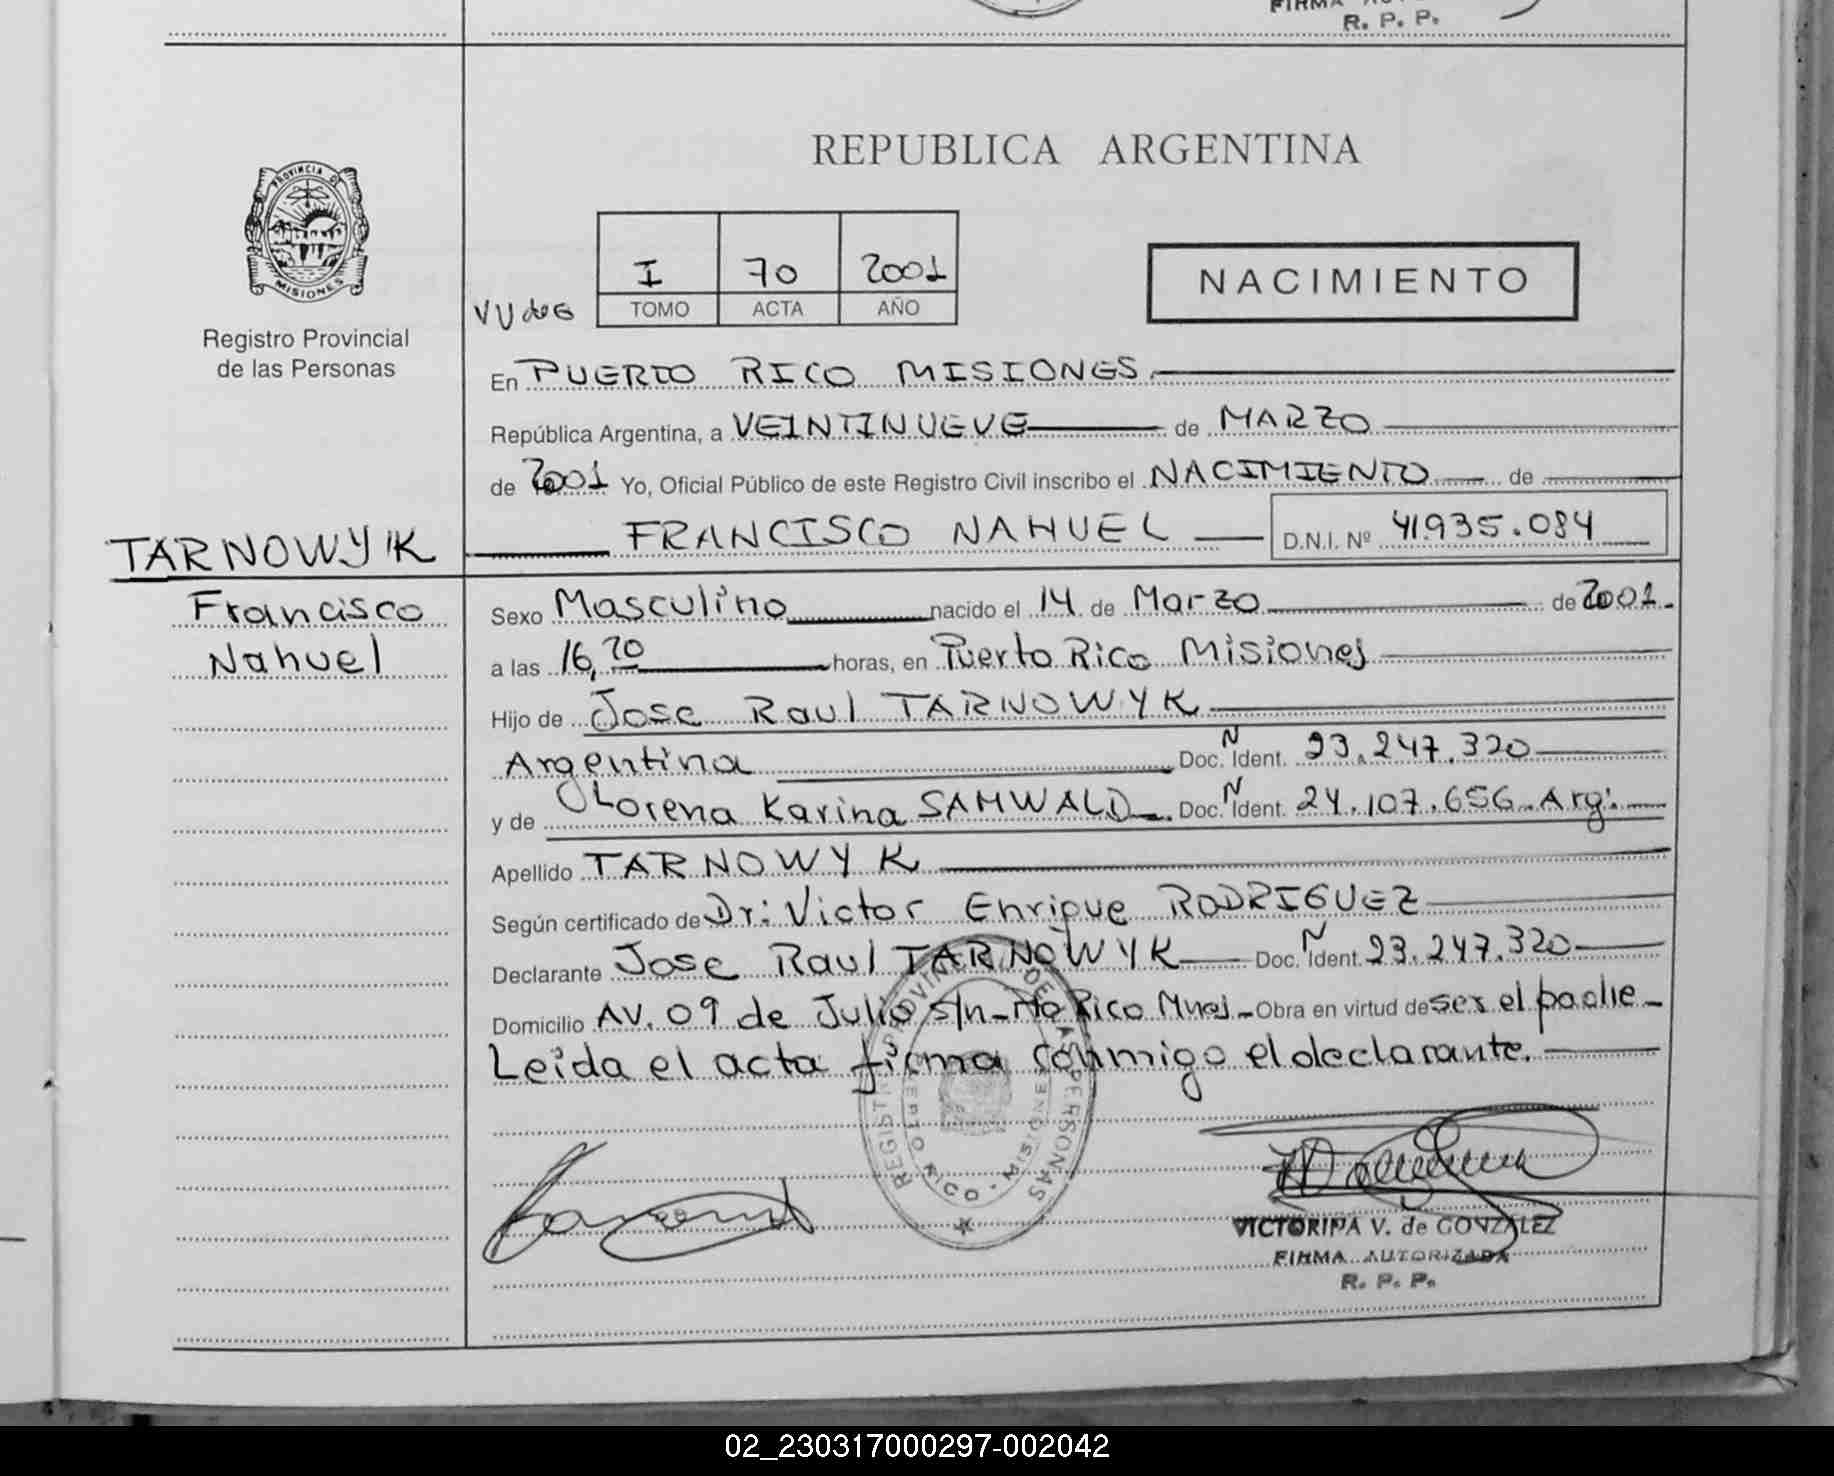 FIRMA AUT
R. P. P.
REPUBLICA ARGENTINA
PROVINCIA DE
MISIONES
Registro Provincial
de las Personas
I 70 2001
TOMO ACTA AÑO
NACIMIENTO
En PUERTO RICO MISIONES
República Argentina, a VEINTINUEVE de MARZO
de 2001 Yo, Oficial Público de este Registro Civil inscribo el NACIMIENTO de
FRANCISCO NAHUEL D.N.I. Nº 41.935.084
TARNOWYK
Francisco
Nahuel
Sexo Masculino nacido el 14 de Marzo de 2001.
a las 16,20 horas, en Puerto Rico Misiones
Hijo de Jose Raul TARNOWYK
Argentina Doc. N Ident. 23.247.320
y de Lorena Karina SAMWALD. Doc. N Ident. 24.107.656. Arg:
Apellido TARNOWYK
Según certificado de Dr: Victor Enrique RODRIGUEZ
Declarante Jose Raul TARNOWYK Doc. N Ident. 23.247.320
Domicilio AV. 09 de Julio s/n - Pto Rico Mnes - Obra en virtud de ser el padre -
Leida el acta firma conmigo el declarante.
REGISTRO PROVINCIAL DE LAS PERSONAS
PUERTO RICO - MISIONES
VICTORINA V. de GONZALEZ
FIRMA AUTORIZADA
R. P. P.
02_230317000297-002042